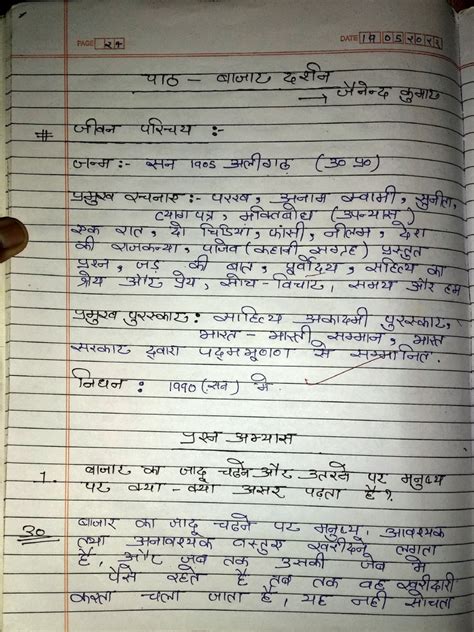 PAGE 24 DATE 19 05 2022
पाठ - बाजार दर्शन
→ जैनेन्द्र कुमार
# जीवन परिचय :-
जन्म :- सन 1905 अलीगढ़ (उ० प्र०)
प्रमुख रचनाए :- परख, अनाम स्वामी, सुनीता,
त्याग पत्र, मुक्तिबोध (उपन्यास)
एक रात, दो चिड़िया, फांसी, नीलम, देश
की राजकन्या, पाजेब (कहानी संग्रह) प्रस्तुत
प्रश्न, जड़ की बात, पूर्वोदय, साहित्य का
श्रेय और प्रेय, सोच-विचार, समय और हम
प्रमुख पुरस्कार : साहित्य अकादमी पुरस्कार,
भारत-भारती सम्मान, भारत
सरकार द्वारा पद्मभूषण से सम्मानित.
निधन : 1990 (सन) में.
प्रश्न अभ्यास
1. बाजार का जादू चढ़ने और उतरने पर मनुष्य
पर क्या-क्या असर पड़ता है?
उ० बाजार का जादू चढ़ने पर मनुष्य, आवश्यक
तथा अनावश्यक वस्तुए खरीदने लगता
है, और जब तक उसकी जेब में
पैसे रहते है तब तक वह खरीदारी
करता चला जाता है, यह नही सोचता